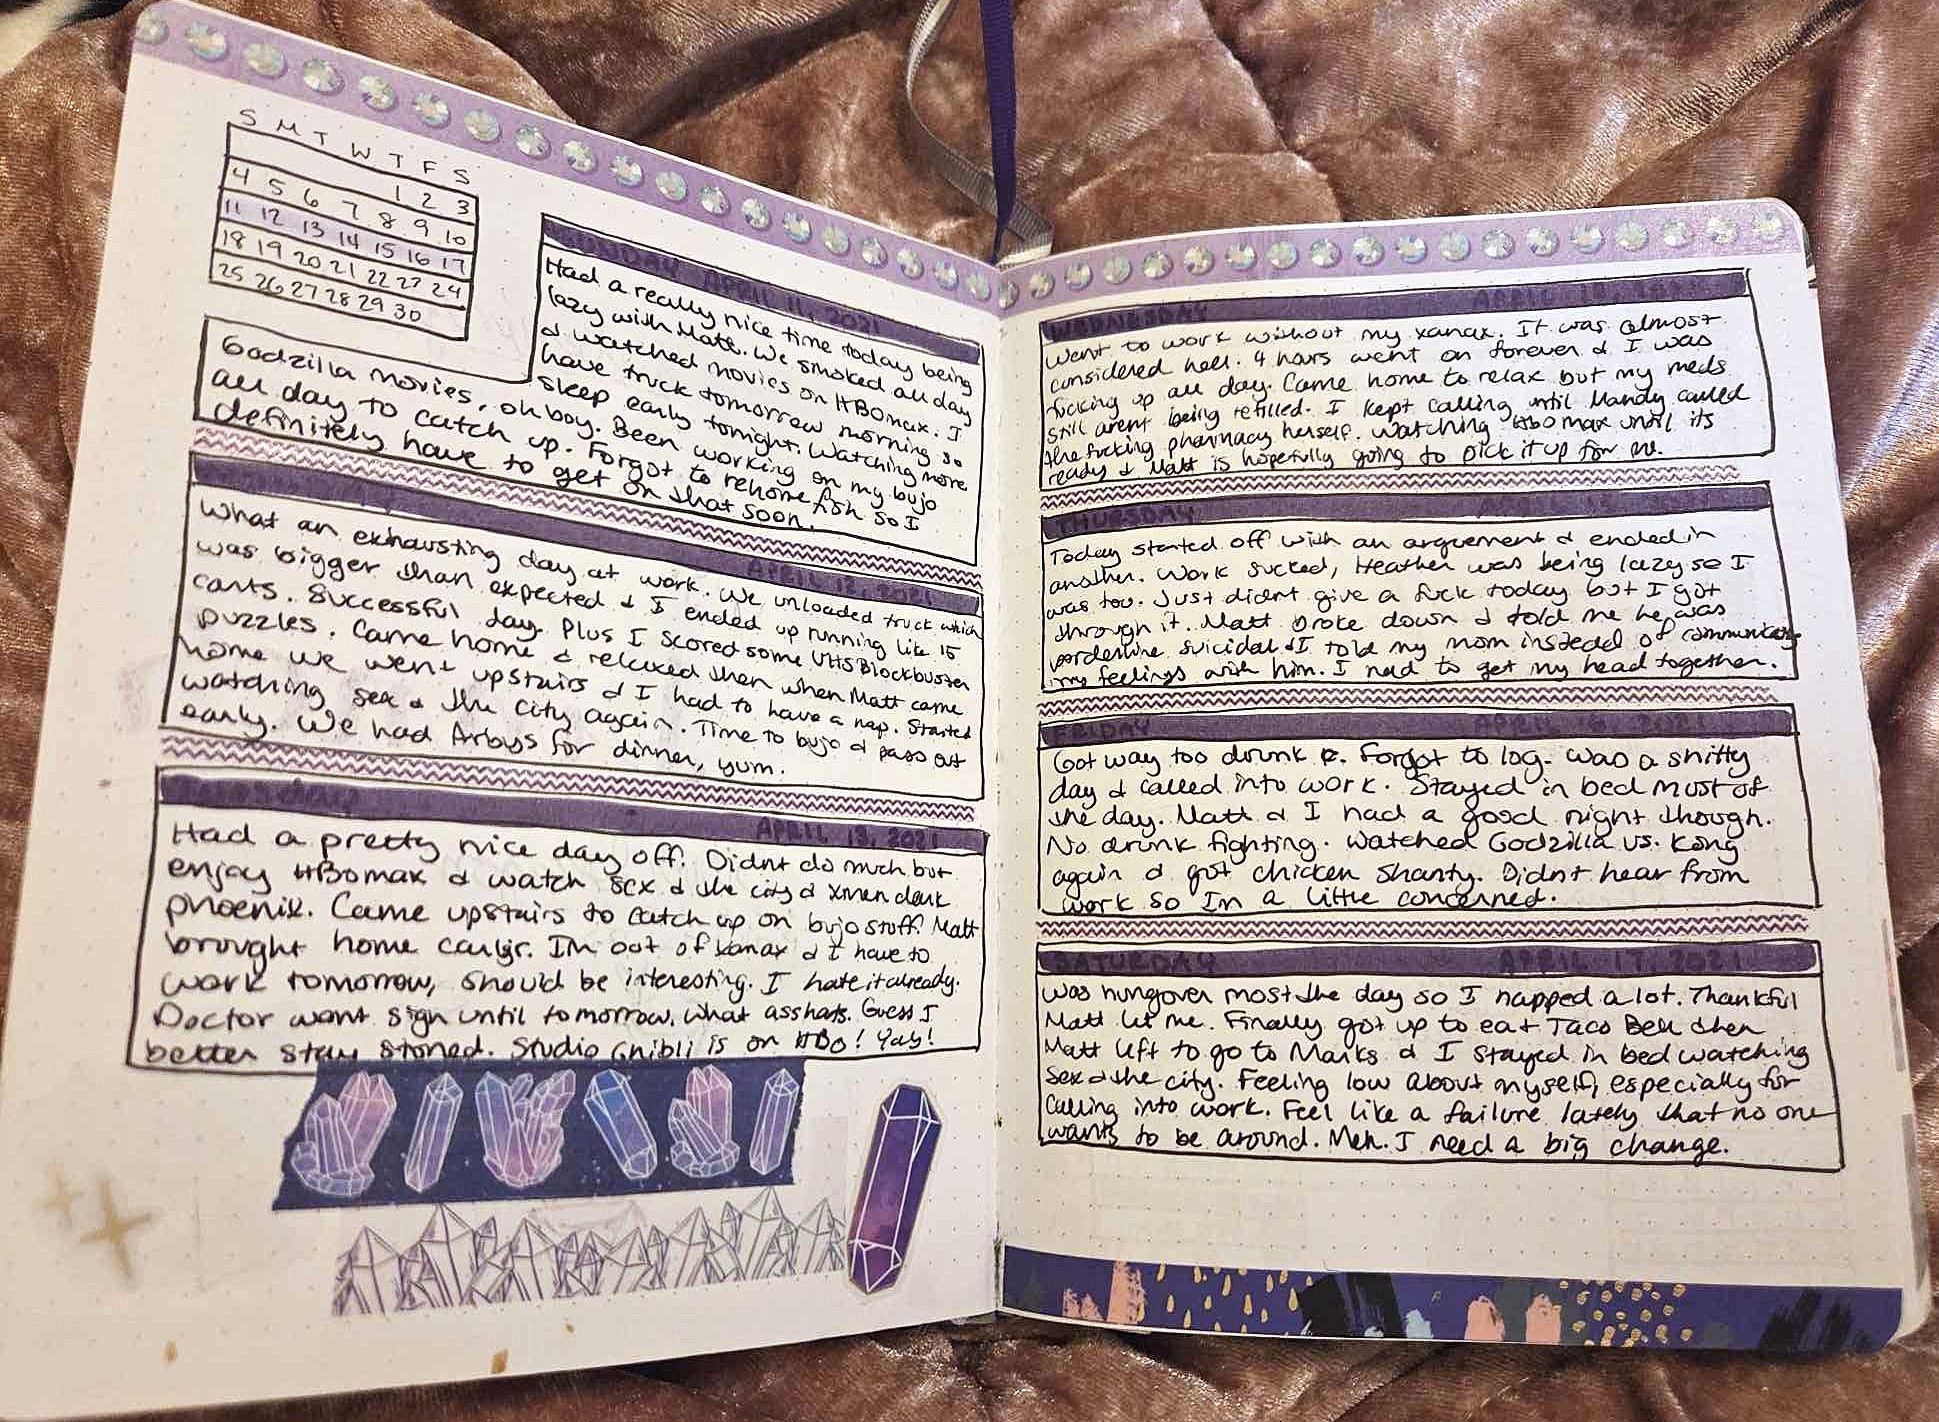 S M T W T F S
1 2 3
4 5 6 7 8 9 10
11 12 13 14 15 16 17
18 19 20 21 22 23 24
25 26 27 28 29 30
SUNDAY APRIL 11, 2021
Had a really nice time today being
lazy with Matt. We smoked all day
& watched movies on HBOmax. I
have truck tomorrow morning so
sleep early tonight. Watching more
Godzilla movies, oh boy. Been working on my bujo
all day to catch up. Forgot to rehome fish so I
definitely have to get on that soon.
APRIL 12, 2021
What an exhausting day at work. We unloaded truck which
was bigger than expected & I ended up running like 15
carts. Successful day. Plus I scored some VHS Blockbuster
puzzles. Came home & relaxed then when Matt came
home we went upstairs & I had to have a nap. Started
watching sex & the city again. Time to bujo & pass out
early. We had Arbys for dinner, yum.
Tuesday APRIL 13, 2021
Had a pretty nice day off. Didnt do much but
enjoy HBOmax & watch sex & the city & xmen dark
phoenix. Came upstairs to catch up on bujo stuff. Matt
brought home. Im out of xanax & I have to
work tomorrow, should be interesting. I hate it already.
Doctor wont sign until tomorrow. What asshats. Guess I
better stay stoned. Studio Ghibli is on HBO! Yay!
WEDNESDAY APRIL
Went to work without my xanax. It was almost
considered hell. 4 hours went on forever & I was
fucking up all day. Came home to relax but my meds
still arent being refilled. I kept calling until Mandy called
the fucking pharmacy herself. Watching HBO max until its
ready & Matt is hopefully going to pick it up for me.
THURSDAY
Today started off with an arguement & ended in
another. Work sucked, Heather was being lazy so I
was too. Just didnt give a fuck today but I got
through it. Matt broke down & told me he was
borderline suicidal & I told my mom instead of communicating
my feelings with him. I need to get my head together.
FRIDAY APRIL 16, 2021
Got way too drunk &. Forgot to log. Was a shitty
day & called into work. Stayed in bed most of
the day. Matt & I had a good night though.
No drunk fighting. Watched Godzilla vs. Kong
again & got chicken shanty. Didnt hear from
work so Im a little concerned.
SATURDAY APRIL 17, 2021
Was hungover most the day so I napped a lot. Thankful
Matt let me. Finally got up to eat Taco Bell then
Matt left to go to Marks & I stayed in bed watching
Sex & the city. Feeling low about myself, especially for
calling into work. Feel like a failure lately that no one
wants to be around. Meh. I need a big change.